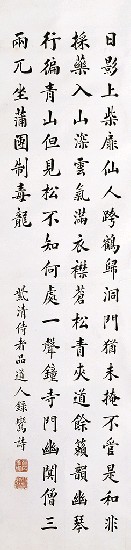 日影上廉扉仙人跨鶴歸洞門猶未掩不管是和非
採藥入山深雲氣滿衣襟蒼松青夾道餘籟韻幽琴
行徧青山但見松不知何處一聲鐘寺門幽閴僧三
兩兀坐蒲團制毒龍
紫清侍者品道人錄鸞詩